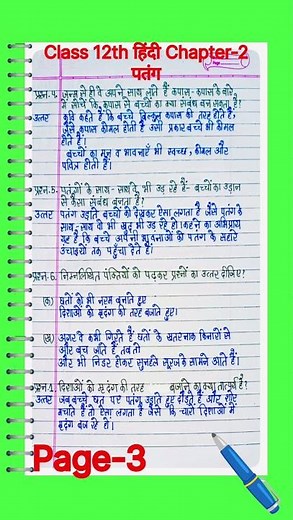 Class 12th हिंदी Chapter-2
पतंग
प्रश्न.4. जन्म से ही वे अपने साथ लाते हैं कपास- कपास के बारे
में सोचें कि कपास से बच्चों का क्या संबंध बन सकता है?
उत्तर कवि कहते हैं कि बच्चे बिल्कुल कपास की तरह होते हैं,
जैसे कपास कोमल होती है उसी प्रकार बच्चे भी कोमल
होते हैं।
बच्चों का मन व भावनाएँ भी स्वच्छ, कोमल और
पवित्र होती हैं।
प्रश्न.5. पतंगों के साथ- साथ वे भी उड़ रहे हैं- बच्चों का उड़ान
से कैसा संबंध बनता है?
उत्तर पतंग उड़ाते बच्चों को देखकर ऐसा लगता है जैसे पतंग के
साथ-साथ वे भी खुद भी उड़ रहे हो। कहने का अभिप्राय
यह है कि बच्चे अपनी भावनाओं को पतंग के सहारे
उंचाइयों तक पहुँचा देते हैं।
प्रश्न-6. निम्नलिखित पंक्तियों को पढ़कर प्रश्नों का उत्तर दीजिए?
(क) छतों को भी नरम बनाते हुए
दिशाओं को मृदंग की तरह बजाते हुए।
(ख) अगर वे कभी गिरते हैं छतों के खतरनाक किनारों से
और बच जाते हैं तब तो
और भी निडर होकर सुनहले सूरज के सामने आते हैं।
प्रश्न.1. दिशाओं को मृदंग की तरह बजाने का क्या तात्पर्य है?
उत्तर जब बच्चे छत पर पतंग उड़ाते हुए दौड़ते हैं और शोर
मचाते हैं तो ऐसा लगता है जैसे कि चारों दिशाओं में
मृदंग बज रहे हो।
Page-3